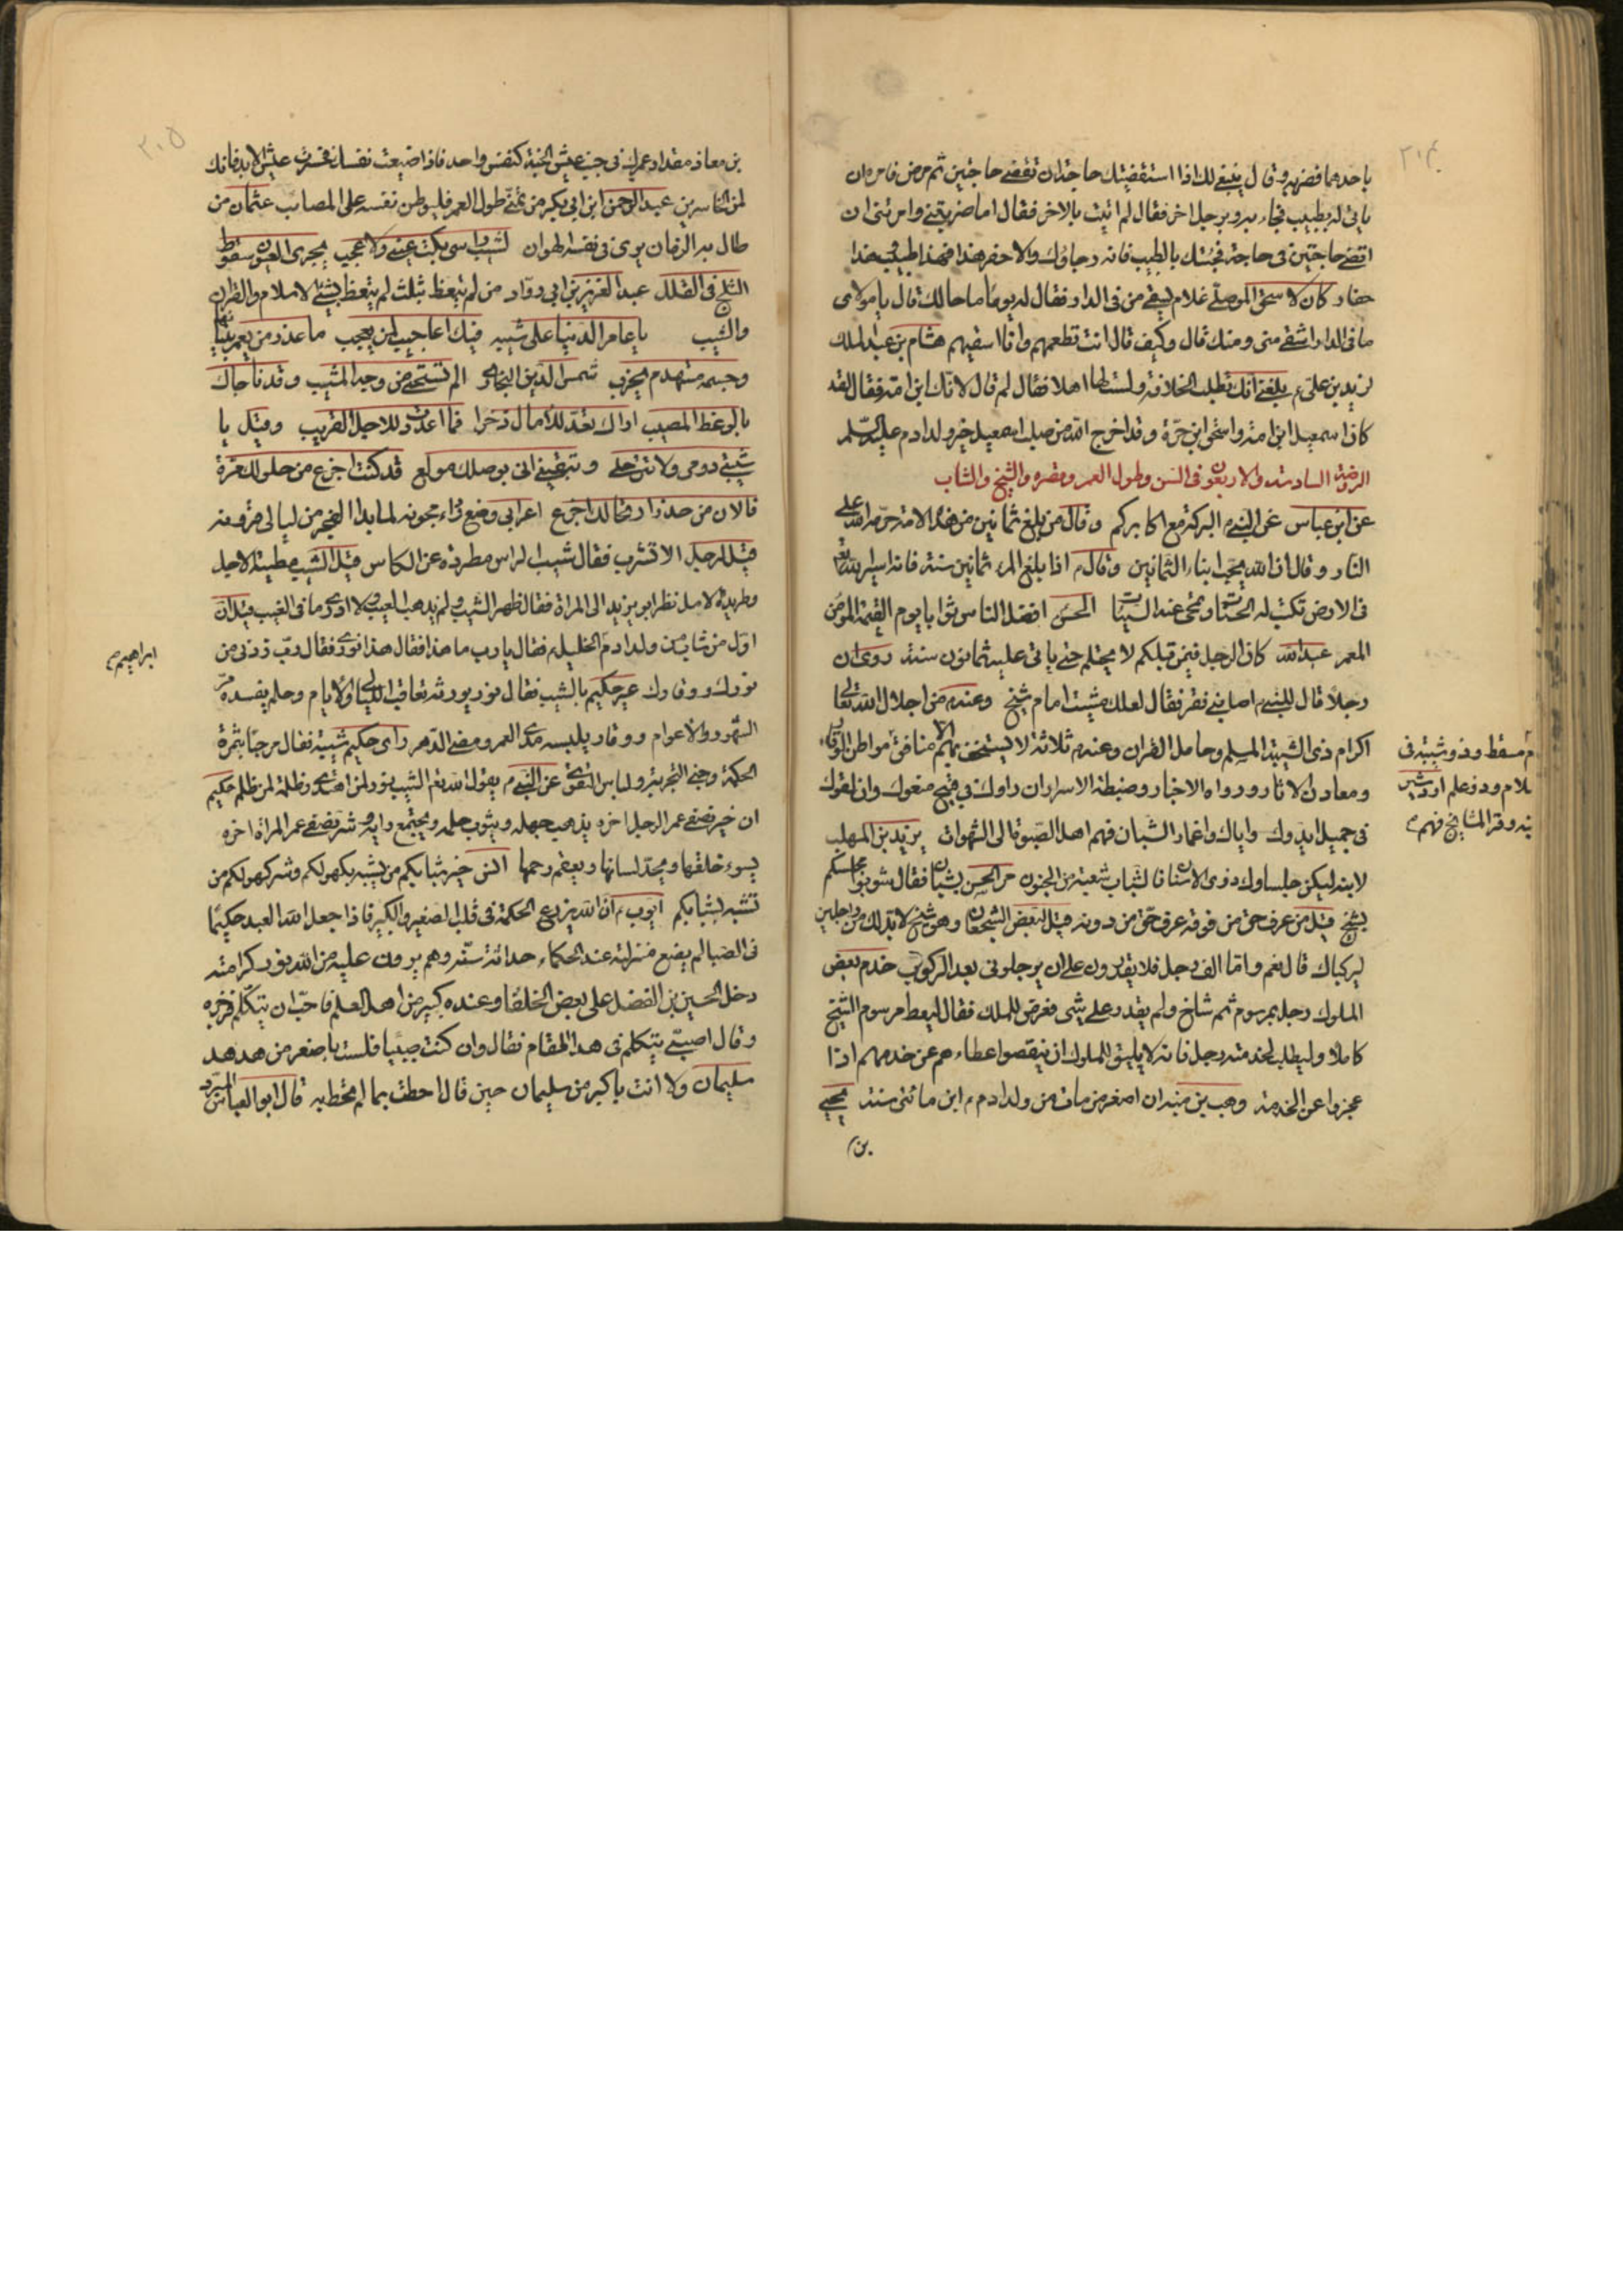 باحدهما فضربه وقال ينبغى لك اذا استقضيتك حاجة ان تقضى حاجتين ثم مرض فامره ان
ياتى له بطبيب فجاء به وبرجل اخر فقال لم اتيت بالاخر فقال اما ضربتنى وامرتنى ان
اقضى حاجتين فى حاجة فجئتك بالطبيب فانه رجاؤك والا حفر هذا فهذا طبيب وهذا
حفار كان لاسحق الموصلى غلام يسقى من فى الدار فقال له يوما ما حالك قال يا مولاى
ما فى الدار اشقى منى ومنك قال وكيف قال انت تطعمهم وانا اسقيهم هشام بن عبد الملك
لزيد بن على بلغنى انك تطلب الخلافة ولست لها اهلا فقال لم قال لانك ابن امة فقال لقد
كان اسمعيل ابن امة واسحق ابن حرة وقد اخرج الله من صلب اسمعيل خير ولد ادم عليه السلم
الروضة السادسة والاربعون فى السن وطول العمر وقصره والشيخ والشاب
عن ابن عباس عن النبى م البركة مع اكابركم وقال من بلغ ثمانين من هذه الامة حرمه الله على
النار وقال ان الله يحب ابناء الثمانين وقال م اذا بلغ المرء ثمانين سنة فانه اسير الله
فى الارض تكتب له الحسنات وتمحى عنه السيئات الحسن افضل الناس ثوابا يوم القيمة المؤمن
المعمر عبد الله كان الرجل فيمن قبلكم لا يحتلم حتى ياتى عليه ثمانون سنة روى ان
رجلا قال للنبى م اصابنى فقر فقال لعلك مشيت امام شيخ وعنه م من اجلال الله تعالى
اكرام ذى الشيبة المسلم وحامل القران وعنه م ثلاثة لا يستخف بهم الا منافق
م مقسط وذو شيبة فى
لام وذو علم اردشير
نه وقر المشايخ فهم
مواطن الوقار
ومعادن الاثار ورواه الاخبار وضبطة الاسرار ان راوك فى قبيح منعوك وان لقوك
فى جميل ايدوك واياك واغمار الشبان فهم اهل الصبوة الى الشهوات يزيد بن المهلب
لابنه ليكن جلساوك ذوى الاسنان فالشباب شعبة من الجنون مر الحسن بشبان فقال شوبوا مجلسكم
بشيخ قيل من عرف حق من فوقه عرف حق من دونه قيل لبعض الشجعان وهو شيخ لابد لك من رجلين
ليركباك قال نعم واما الف رجل فلا يقدرون على ان يرجلونى بعد الركوب خدم بعض
الملوك رجل بمرسوم ثم شاخ ولم يقدر على شى فعرض للملك فقال ليعط مرسوم الشيخ
كاملا وليطلب لخدمته رجل فانه لا يليق للملوك ان ينقصوا عطاءهم عن خدمهم اذا
عجزوا عن الخدمة وهب بن منبه ان اصغر من مات من ولد ادم م ابن مائتى سنة يحيى
بن
بن معاذ مقدار عمرك فى جنب عيش الجنة كنفس واحد فاذا ضيعت نفسك فخسرت عيش الابد فانك
لمن الخاسرين عبد الرحمن ابن ابى بكر من تمنى طول العمر فليوطن نفسه على المصائب عثمان من
طال به الزمان يرى فى نفسه الهوان لشيب راسى بكت عينى ولا عجب يجرى العيون سقوط
الثلج فى القلل عبد العزيز بن ابى رواد من لم يتعظ بثلث لم يتعظ بشئ الاسلام والقران
والشيب يا عامر الدنيا على شيبه فيك اعاجيب لمن يعجب ما عذر من يعمر بنيانها
وجسمه منهدم يخرب شمس الدين الم تستحى من وجه المشيب وقد ناجاك
بالوعظ المصيب اراك تعد للامال ذخرا فما اعددت للاجل القريب وقيل يا
شيبتى دومى ولا تترحلى وتيقنى انى بوصلك مولع قد كنت اجزع من حلولك مرة
فالان من حذر ارتحالك اجزع اعرابى وضع
قيل لرجل الا تشرب فقال شيب الراس مطردة عن الكاس قيل الشيب مطية الاجل
وطريدة الامل نظر ابو يزيد الى المراة فقال ظهر الشيب ولم يذهب العيب ولا ادرى ما فى الغيب قيل ان
اول من شاب من ولد ادم الخليل م فقال يا رب ما هذا فقال هذا نورى فقال رب زدنى من
ابراهيم
نورك ووقارك عير حكيم بالشيب فقال نور يورثه تعاقب الليالى والايام وحلم يفيده مر
الشهور والاعوام ووقار يلبسه مدى العمر ومضى الدهر راى حكيم شيبة فقال مرحبا بثمرة
الحكمة وجنى التجربة ولباس التقوى عن النبى م يقول الله تع الشيب نور لمن اهتدى وظلمة لمن ظلم حكيم
ان خير نصفى عمر الرجل اخره يذهب جهله ويثوب حلمه ويجتمع رايه وشر نصفى عمر المراة اخره
يسوء خلقها ويحد لسانها ويعقم رحمها انس خير شبابكم من يشبه بكهولكم وشر كهولكم من
تشبه بشبابكم ايوب م ان الله يزرع الحكمة فى قلب الصغير والكبير فاذا جعل الله العبد حكيما
فى الصبا لم يضع منزلته عند الحكماء حداثة سنه وهم يرون عليه من الله نور كرامته
دخل الحسين بن الفضل على بعض الخلفا وعنده كبير من اهل العلم فاحب ان يتكلم فزجره
وقال اصبى يتكلم فى هذا المقام فقال وان كنت صبيا فلست باصغر من هدهد
سليمان ولا انت باكبر من سليمان حين قال احطت بما لم تحط به قال ابو العباس المبرد